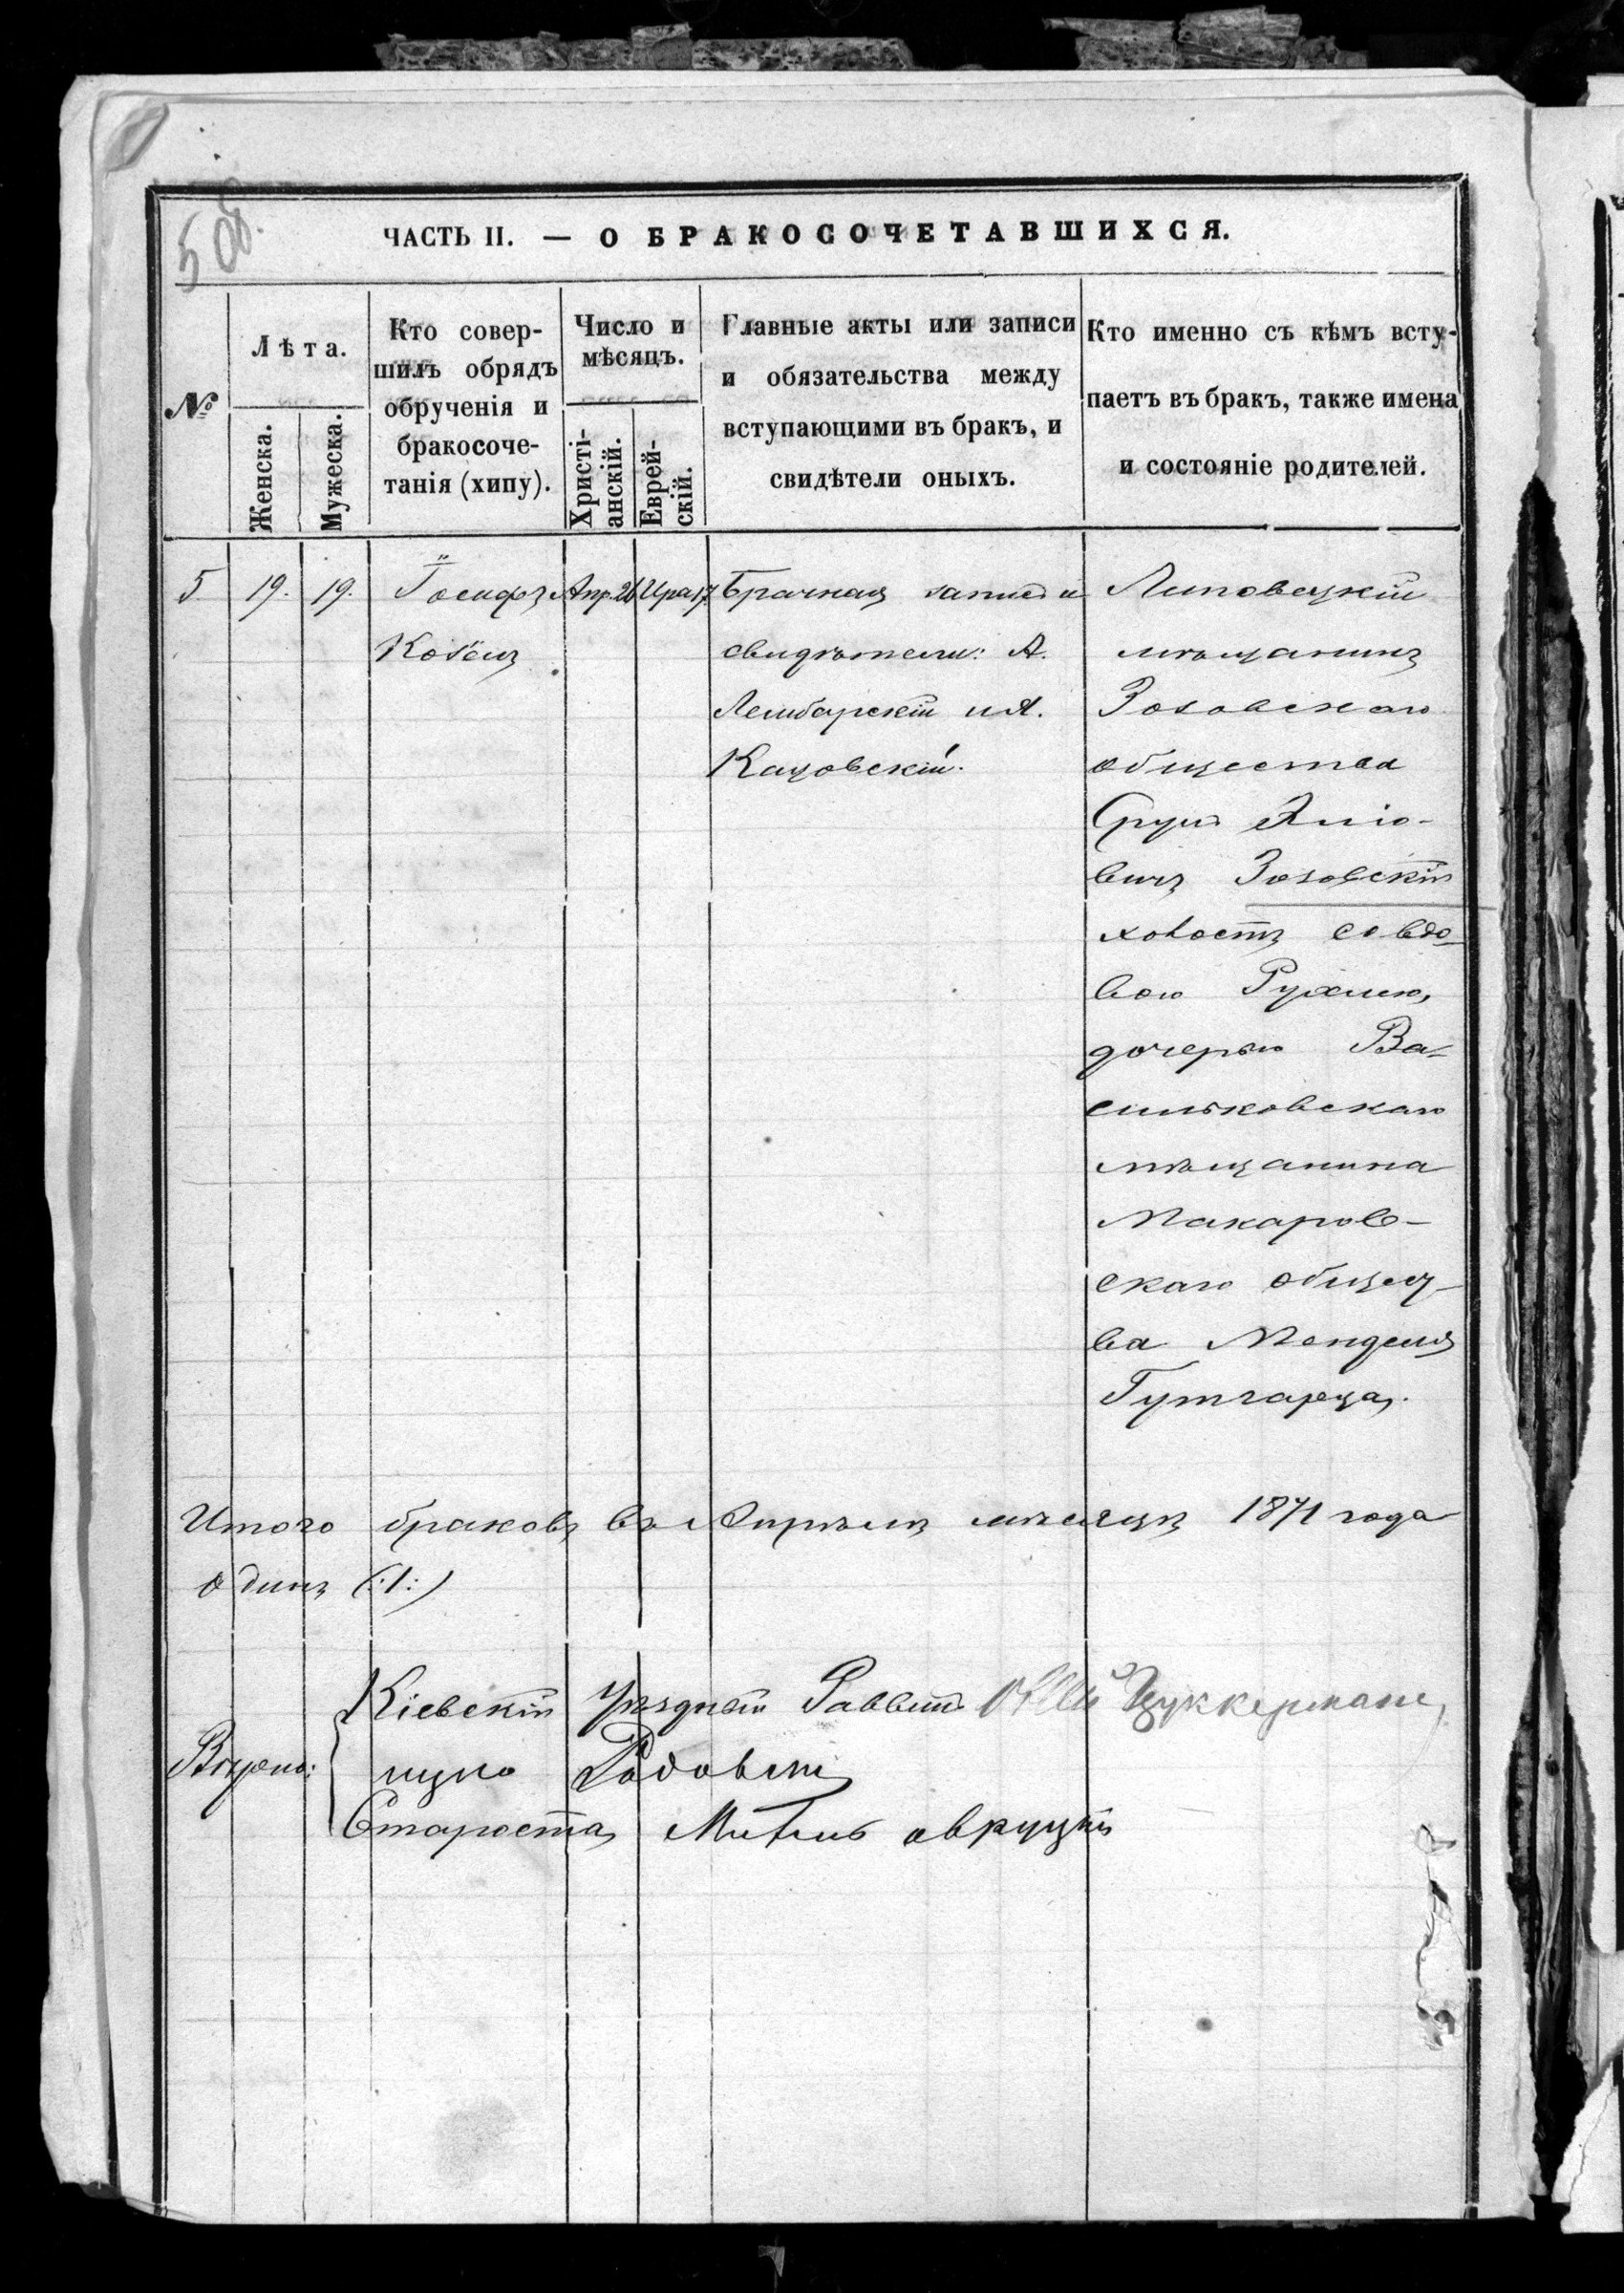 508.
ЧАСТЬ II. — О БРАКОСОЧЕТАВШИХСЯ.
№
Лѣта.
Женска.
Мужеска.
Кто совер-
шилъ обрядъ
обрученія и
бракосоче-
танія (хипу).
Число и
мѣсяцъ.
Христі-
анскій.
Еврей-
скій.
Главные акты или записи
и обязательства между
вступающими въ бракъ, и
свидѣтели оныхъ.
Кто именно съ кѣмъ всту-
паетъ въ бракъ, также имена
и состояніе родителей.
5. 19. 19.
Іосифъ
Апр. 26 Ира 17.
Брачная запись и
свидѣтели: А.
Лембарскій и А.
Кацовскій.
Липовецкій
мѣщанинъ
Зозовскаго
общества
Сруль
вичъ Зозовскій
холостъ со вдо-
вою Рухлею,
дочерью Ва-
сильковскаго
мѣщанина
Макаров-
скаго общест-
ва Менделя
Гутгарца.
Итого браковъ въ Апрѣлѣ мѣсяцѣ 1871 года
одинъ (:1:)
Кіевскій Уѣздный Раввинъ Цуккерманъ
Вѣрно:
Староста овруцкій